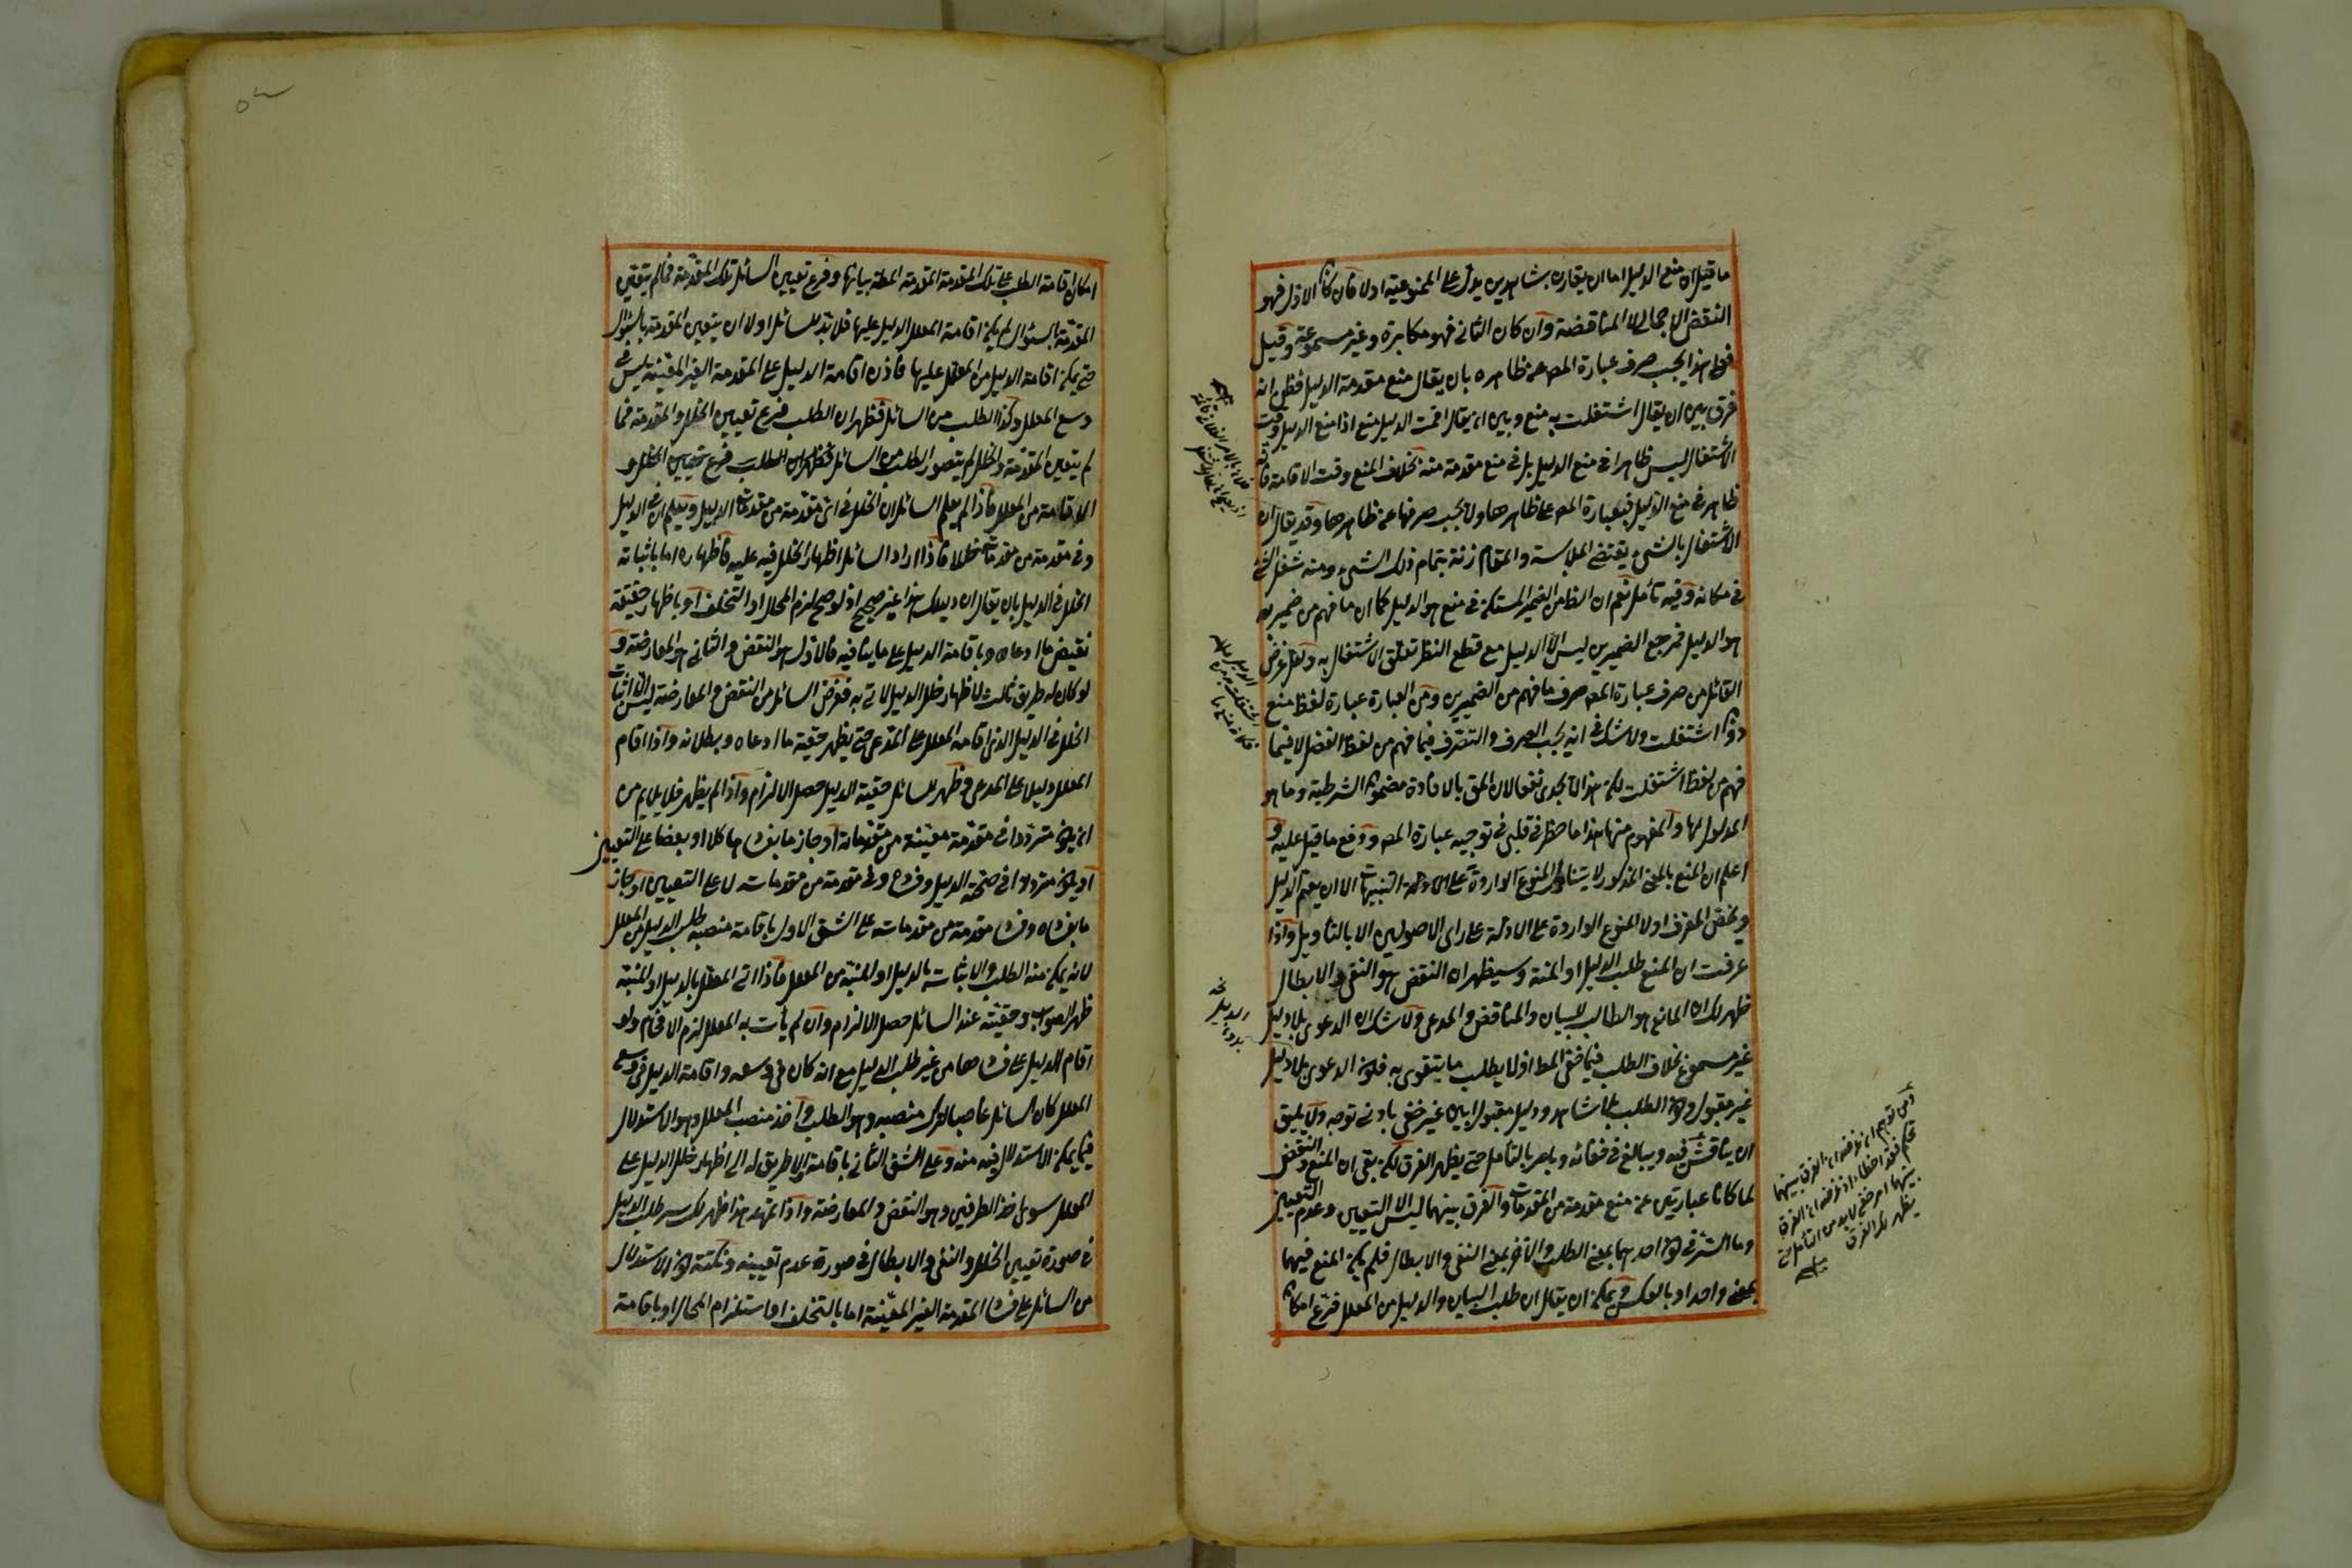 ما قيل ان منع الدليل اما ان يقارن بشاهد يدل على الممنوعية اولا فان كان الاول فهو
النقض الاجمالى لا المناقضة وان كان الثانى فهو مكابرة وغير مسموعة وقيل
فعلى هذا يجب صرف عبارة المص عن ظاهره بان يقال منع مقدمة الدليل فظن انه
فرق بين ان يقال اشتغلت به منع وبين ان يقال اقمت الدليل منع اذ منع الدليل وقت
الاشتغال ليس ظاهرا فى منع الدليل بل فى منع مقدمة منه بخلاف المنع وقت الاقامة فانه
ظاهر فى منع الدليل فعبارة المص على ظاهرها ولا يجب صرفها عن ظاهرها وقد يقال ان
الاشتغال بالشىء يقتضى الملابسة والمقارنة بتمام ذلك الشىء ومنه شغل الشىء
فى مكانه وفيه تأمل نعم ان الظ من الضمير المستكن فى منع هو الدليل كما ان ما فهم من ضمير به
هو الدليل فمرجع الضميرين ليس الا الدليل مع قطع النظر تعلق الاشتغال به ولعل غرض
القائل من صرف عبارة المص صرف ما فهم من الضميرين ومن العبارة عبارة لفظ منع
دون اشتغلت ولا شك فى انه يجب الصرف والتصرف فيما فهم من لفظ الفصل لا فيما
فهم من لفظ اشتغلت لكن هذا لا يجدى نفعا لان المق بالافادة مضمون الشرطية وما هو
المدلول لها والمفهوم منها هذا ما خطر فى قلبى فى توجيه عبارة المص ودفع ما قيل عليه و
اعلم ان المنع بالمعنى المذكور لا يتناول المنوع الواردة على التنبيهات الا ان يعم الدليل
ويخص المعرف اولا المنوع الواردة على الادلة على راى الاصوليين الا بالتأويل واذا
عرفت ان المنع طلب الدليل او المنبه وسيظهر ان النقض هو النفى والابطال
ظهر لك ان المانع هو الطالب للبيان والمناقض والمدعى ولا شك ان الدعوى بلا دليل
غير مسموع بخلاف الطلب فيما خفى المط اذ لا يطلب ما يتقوى به فلون الدعوى بلا دليل
غير مقبول وكون الطلب بلا شاهد ودليل مقبولا بين غير خفى بادنى توجه ولا يليق
ان يناقش فيه ويبالغ فى خفائه ويامر بالتأمل حتى يظهر الفرق لكن بقى ان المنع والنقض
لما كانا عبارتين عن منع مقدمة من المقدمات والفرق بينهما ليس الا التعيين وعدم التعيين
وما السر فى كون احدهما بمعنى الطلب والآخر بمعنى النفى والابطال فلم يكن المنع فيهما
بمعنى واحد او بالعكس ويمكن ان يقال ان طلب البيان والدليل من المعلل فرع امكان
ومن توهم
فقد اخطأ
بينهما امر خفى لا بد من التأمل حتى
يظهر لك الفرق
امكان اقامة الطلب على تلك المقدمة المقدمة المط بيانها وفرع تعيين السائل تلك المقدمة فما لم يتعين
المقدمة بالسئوال لم يكن اقامة المعلل الدليل عليها فلا بد للسائل اولا ان يتعين المقدمة بالسئوال
حتى يمكن اقامة الدليل من المعلل عليها فاذن اقامة الدليل على المقدمة الغير المعينة ليس فى
وسع المعلل وكذا الطلب من السائل فظهر ان الطلب فرع تعيين الخلل والمقدمة فما
لم يتعين المقدمة والخلل لم يتصور الطلب من السائل فظهر ان الطلب فرع تعيين الخلل و
الاقامة من المعلل فاذا لم يعلم السائل ان الخلل فى اى مقدمة من مقدمات الدليل ويعلم ان فى الدليل
وفى مقدمة من مقدماته خللا فاذا اراد السائل اظهار الخلل فيه عليه فاظهاره اما باثباته
الخلل فى الدليل بان يقال ان دليلك هذا غير صحيح اذ لو صح لزم المحال او التخلف او باظهار حقيقة
نقيض ما ادعاه وباقامة الدليل على ما ينافيه فالاول هو النقض والثانى هو المعارضة و
لو كان له طريق ثالث لاظهار خلل الدليل لاتى به فغرض السائل من النقض والمعارضة ليس الا اثبات
الخلل فى الدليل الذى اقامه المعلل على المدعى حتى يظهر حقية ما ادعاه وبطلانه واذا اقام
المعلل دليلا على المدعى وظهر للسائل حقية الدليل حصل الالزام واذا لم يظهر فلا يلايم من
ان يكون مترددا فى مقدمة معينة من مقدماته او جاز ما بفسادها كلا او بعضا على التعيين
او يكون مترددا فى صحة الدليل وفساده وفى مقدمة من مقدماته لا على التعيين او جاز
ما بفساده وفساد مقدمة من مقدماته على الشق الاول باقامة منصبه طلب الدليل من المعلل
لانه يمكن منه الطلب والاثبات بالدليل او المنبه من المعلل فاذا اتى المعلل بالدليل او المنبه
ظهر الصواب وحقيته عند السائل حصل الالزام وان لم يأت به المعلل لزم الافحام ولو
اقام الدليل على فسادها من غير طلب الدليل مع انه كان فى وسعه واقامة الدليل فى وسع
المعلل كان السائل غاصبا لترك منصبه وهو الطلب واخذ منصب المعلل وهو الاستدلال
فيما يمكن الاستدلال فيه منه وعلى الشق الثانى باقامة لا طريق له الى اظهار خلل الدليل على
المعلل سوى هذ الطرفين وهو النقض والمعارضة واذا تمهد هذا ظهر لك سر طلب الدليل
فى صورة تعيين الخلل والنفى والابطال فى صورة عدم تعيينه ونكتة كون الاستدلال
من السائل على فساد المقدمة الغير المعينة اما بالتخلف او استلزام المحال او باقامة